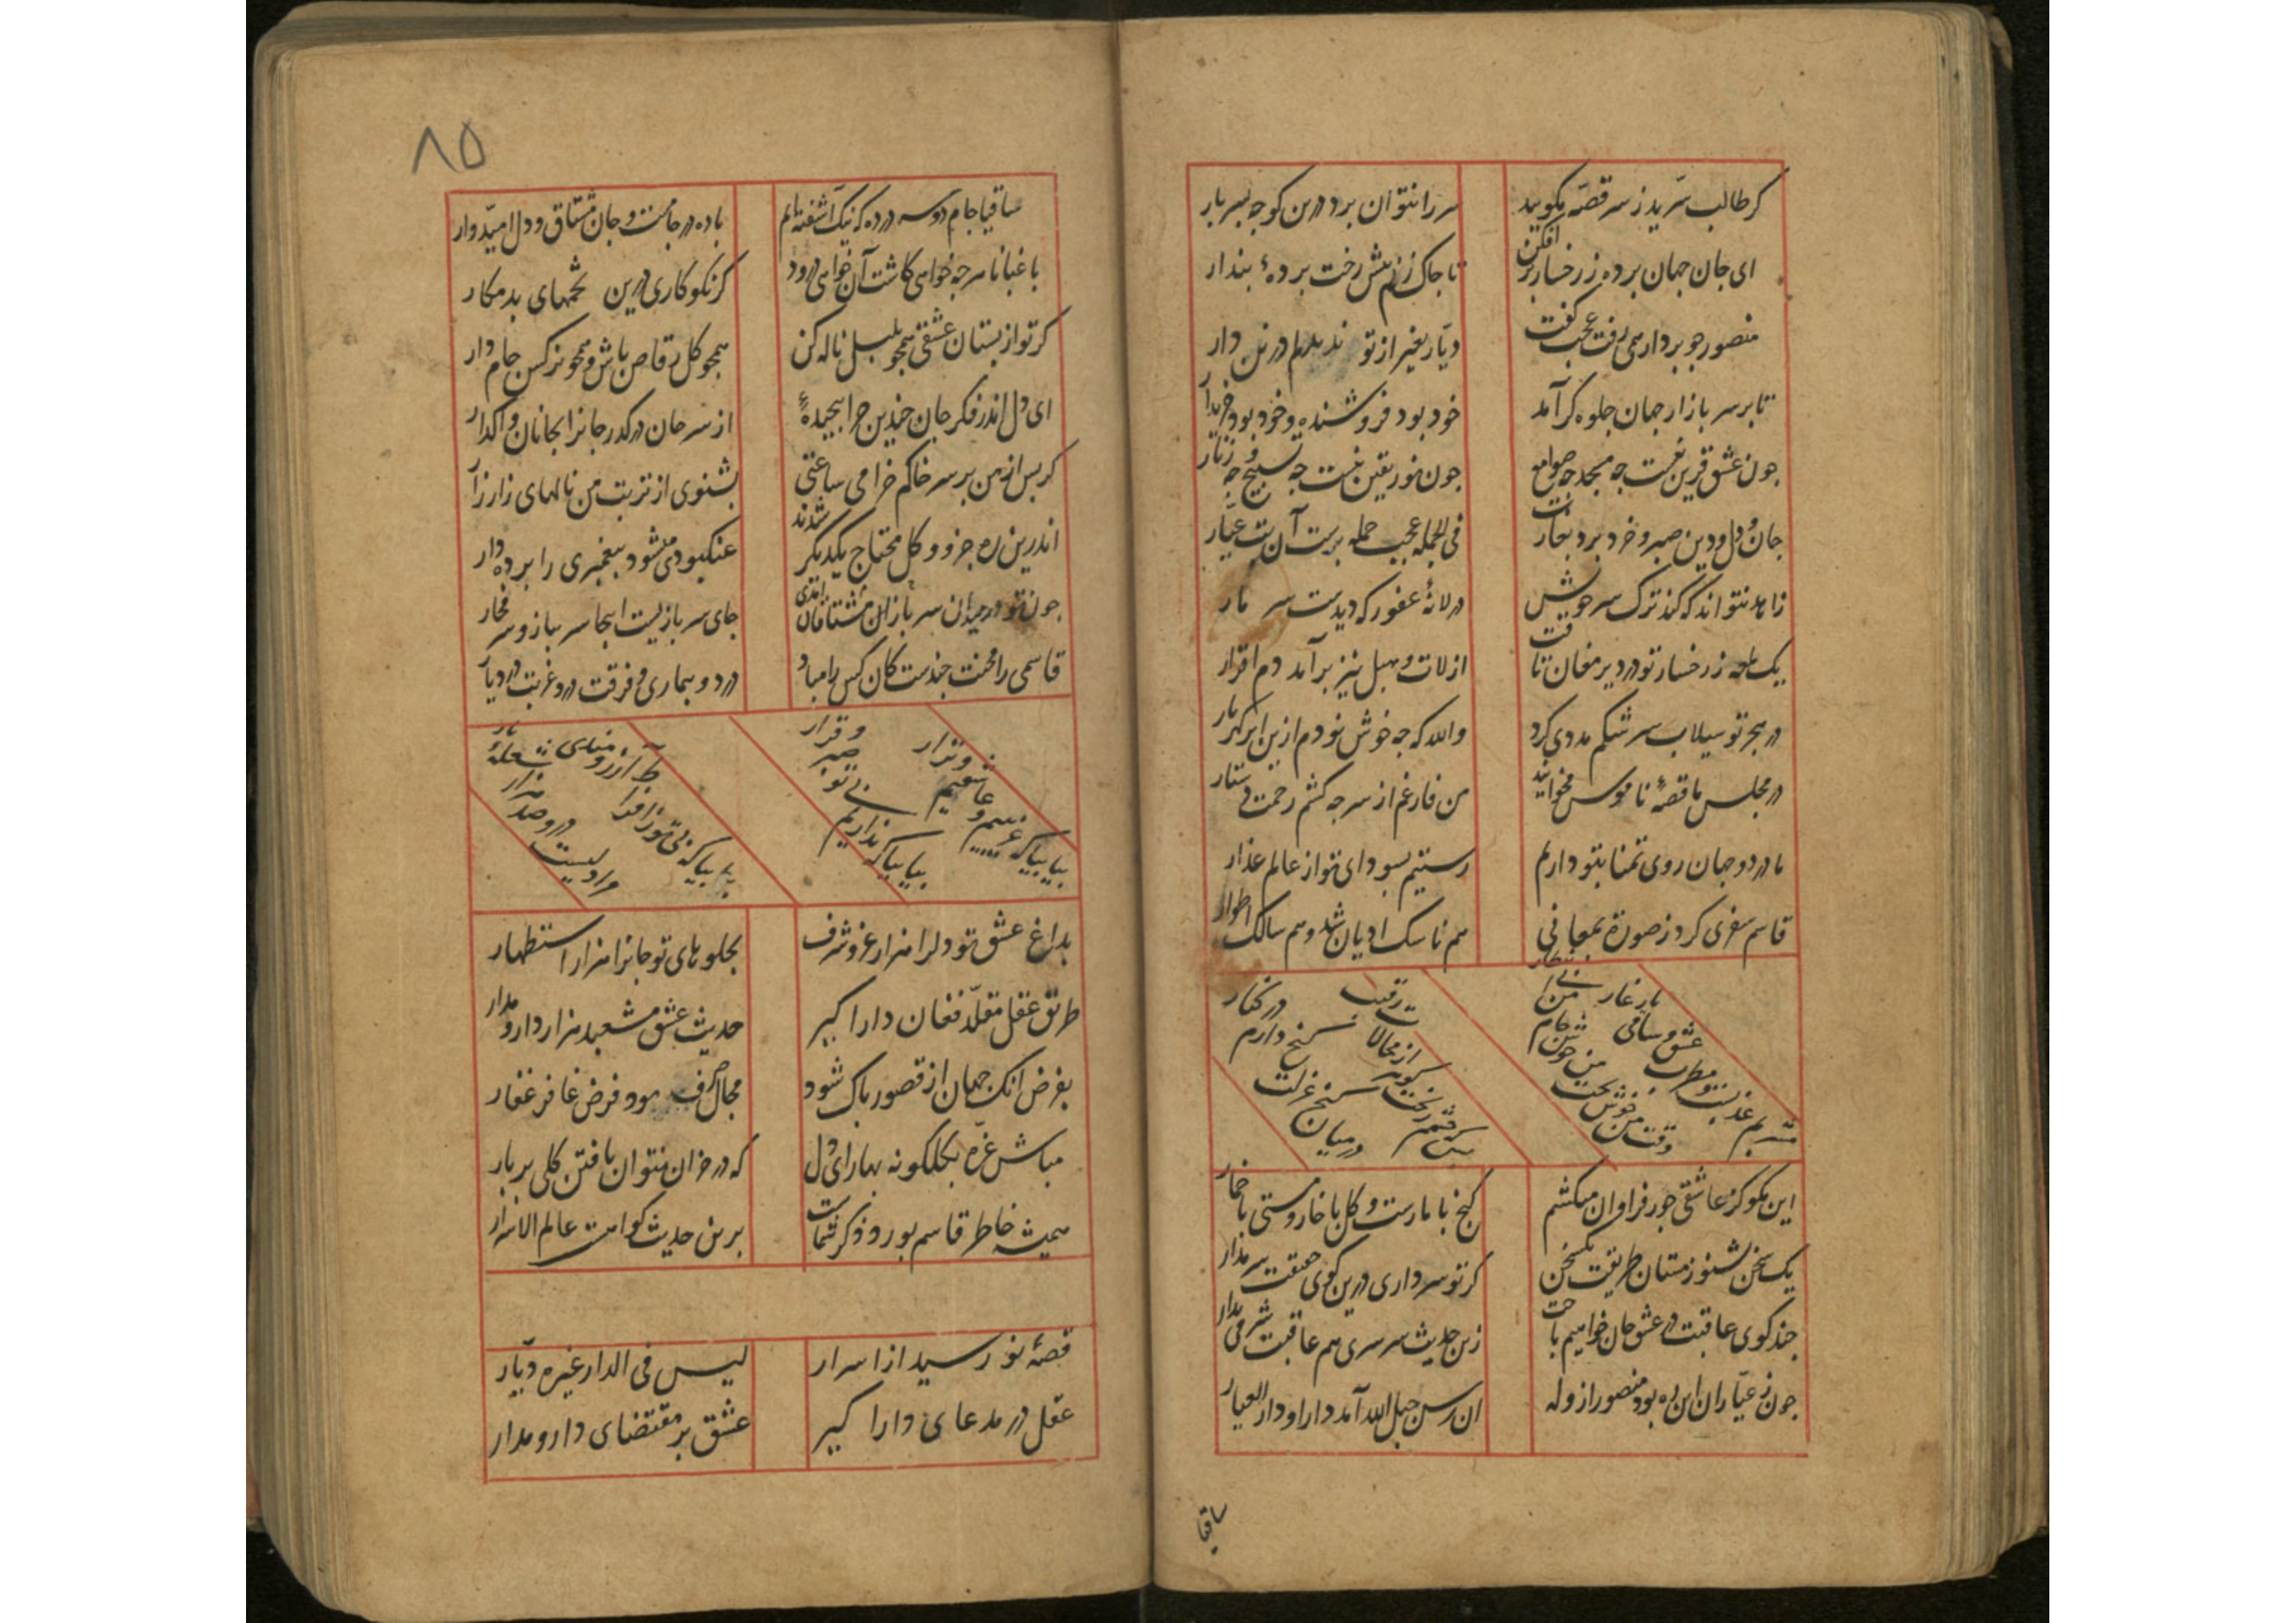 کر طالب سرید ز سر قصه مکویید
سر را نتوان برد درین کوجه بسربار
ای جان جهان برده ز رخسار بر افکن
تا جاک زنم بیش رخت بردهٔ بندار
منصور جو بر دار همی رفت عجب کفت
دیار بغیر از تو ندیدم درین دار
تا بر سر بازار جهان جلوه کر آمد
خود بود فروشنده و خود بود خریدار
جون عشق قرین نیست جه مسجد جه صوامع
جون نور یقین نیست جه تسبیح و جه زنار
جان و دل و دین صبر و خرد برد بغارت
فی الجمله عجب حمله برست آن بت عیار
زاهد نتواند که کند ترک سر خویش
در لانهٔ عفور که دیدست سر مار
یک لمحه ز رخسار تو در دیر مغان تافت
از لات و هبل نیز برآمد دم اقرار
در هجر تو سیلاب سرشکم مددی کرد
والله که جه خوش بودم ازین ابر کهربار
در مجلس ما قصهٔ ناموس مخوانید
من فارغم از سرجه کشم رحمت ستار
ما در دو جهان روی تمنا بتو داریم
رستیم بسودای تو از عالم غدار
قاسم سفری کرد ز صورة بمعانی
هم ناسک ادیان شد و هم سالک اطوار
مشربم عذبست و مطرب عشق و ساقی یار غار
وقت من خوش بخت من خوش کام من
در میان کنج عزلت کنج دارم در کنار
این مکو کز عاشقی جور فراوان میکشم
کنج با مارست و کل با خار و مستی با خمار
یک سخن بشنو ز مستان طریقت یکسخن
کر تو سر داری درین کوی حقیقت سر مدار
جند کوی عاقبت در عشق جان خواهیم باخت
زین حدیث سرسری هم عاقبت شرمی بدار
جون ز عیاران این ره بود منصور از وله
ان رسن حبل الله آمد دار او دار العیار
ساقیا
۸۵
ساقیا جام دوسه در ده که نیک آشفته‌ایم
باده در جامست و جان مشتاق و دل امیدوار
باغبانا هرجه خواهی کاشت آن خواهی درود
کر نکو کاری درین تخمهای بد مکار
کر تو از بستان عشقی همجو بلبل ناله کن
همجو کل رقاص باش و همجو نرکس جام دار
ای دل اندر فکر جان جندین جرا بیجیدهٔ
از سر جان درکذر جانرا بجانان واکذار
کر بس از من بر سر خاکم خرامی ساعتی
بشنوی از تربت من نالهای زار زار
اندرین ره جزو و کل محتاج یکدیکر شدند
عنکبوتی میشود بیغمبری را برده دار
جون تو در میدان سربازان مشتاقان آمدی
جای سربازیست اینجا سر بباز و سر مخار
قاسمی را محنت جندست کان کس را مباد
درد و بیماری و فرقت درد و غربت در دیار
بیا بیا که غریبیم و عاشقیم و نزار
بیا بیا که نداریم بی تو صبر و قرار
بیا بیا که بی تو
بداغ عشق تو دلرا هزار عز و شرف
بجلوهای تو جانرا هزار استظهار
طریق عقل مقلد فغان دارا کیر
حدیث عشق مشعبد هزار دار و مدار
بفرض انک جهان از قصور باک شود
مجال صرف بود فرض غافر غفار
مباش غره بکلکونه بهار ای دل
که در خزان نتوان یافتن کلی بر بار
همیشه خاطر قاسم بورد ذکر شماست
برین حدیث کواهست عالم الاسرار
قصهٔ نو رسید از اسرار
لیس فی الدار غیره دیار
عقل در مدعای دارا کیر
عشق بر مقتضای دار و مدار